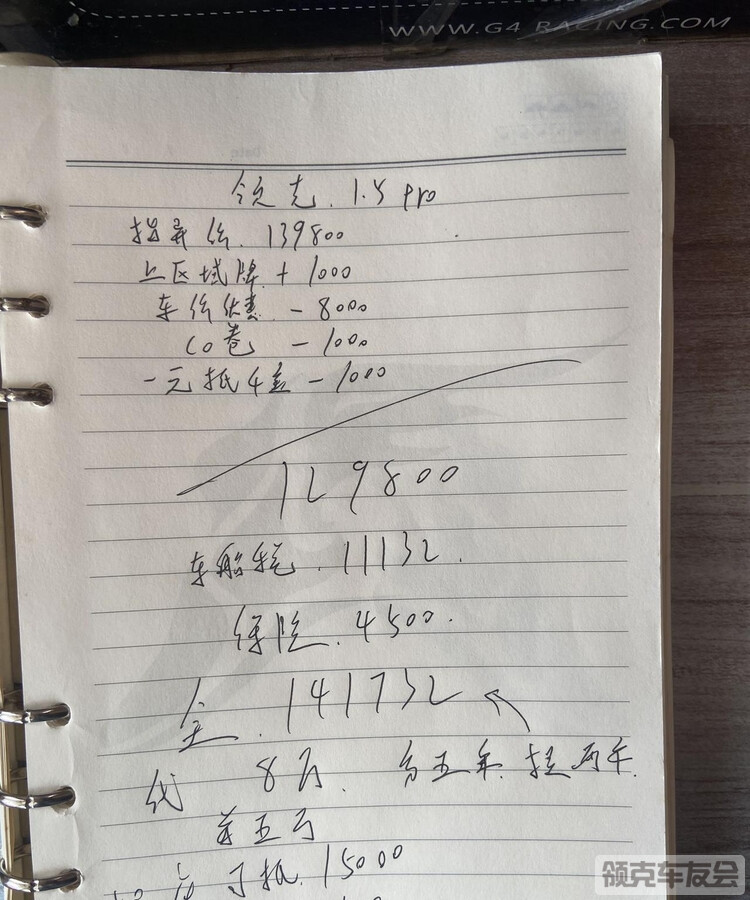 WWW.G4 RACING.COM
Date
领克 1.5 pro
指导价. 139800
上区域牌 + 1000
车价优惠 - 8000
CO卷 - 1000
一元抵千金 - 1000
129800
车船税. 11132.
保险. 4500.
全. 141732
代 8万. 分五年 提两年.
首五万
抵 15000
领克车友会